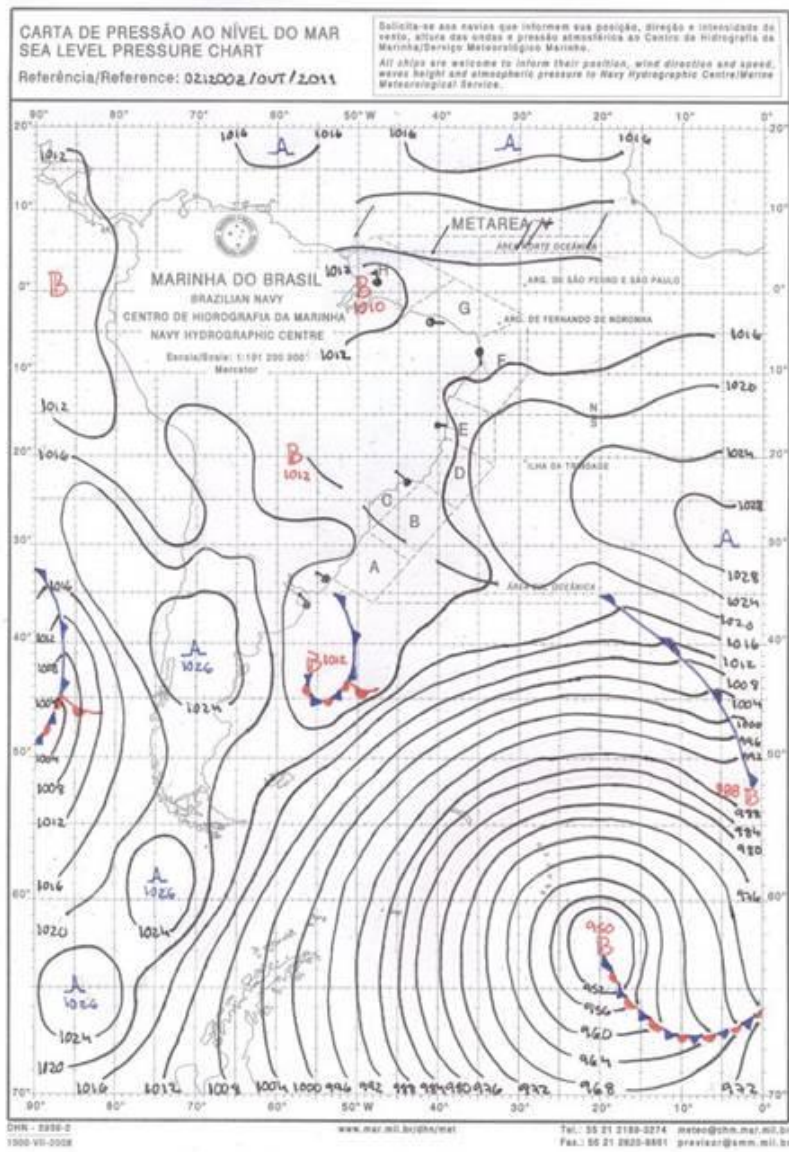 CARTA DE PRESSÃO AO NÍVEL DO MAR
SEA LEVEL PRESSURE CHART
Referência/Reference: 021200Z/OUT/2011
Solicita-se aos navios que informem sua posição, direção e intensidade do
vento, altura das ondas e pressão atmosférica ao Centro de Hidrografia da
Marinha/Serviço Meteorológico Marinho.
All ships are welcome to inform their position, wind direction and speed,
waves height and atmospheric pressure to Navy Hydrographic Centre/Marine
Meteorological Service.
90° 80° 70° 60° 50° 40° 30° 20° 10° 0°
20° 1012 1016 A 1016 1016 A 1016 20°
10° METAREA V 10°
ÁREA NORTE OCEÂNICA
MARINHA DO BRASIL
BRAZILIAN NAVY
CENTRO DE HIDROGRAFIA DA MARINHA
NAVY HYDROGRAPHIC CENTRE
Escala/Scale: 1:101 200 000
Mercator
B 1012 H B 1010 1012
0° ARQ. DE SÃO PEDRO E SÃO PAULO 0°
G
ARQ. DE FERNANDO DE NORONHA
F 1016
10° 1020 10°
1012 N S
1016 E
20° B 1012 D ILHA DA TRINDADE 1024 20°
C B 1028
A A
30° ÁREA SUL OCEÂNICA 1028 30°
1024
1020
1016 1016
1012 1012
1008 1008
40° A 1026 B 1012 1004 40°
1024 1000
996
992
50° 1004 988 B 50°
1008 988
984
1012 980
1016 A 1026 976
60° 1024 60°
1020 950 B
A 1026 952
956
1024 960
1020 964
70° 1016 1012 1008 1004 1000 996 992 988 984 980 976 972 968 972 70°
90° 80° 70° 60° 50°W 40° 30° 20° 10° 0°
DHN - 5938-2
1000-VII-2008
www.mar.mil.br/dhn/met
Tel.: 55 21 2189-3274 meteo@chm.mar.mil.br